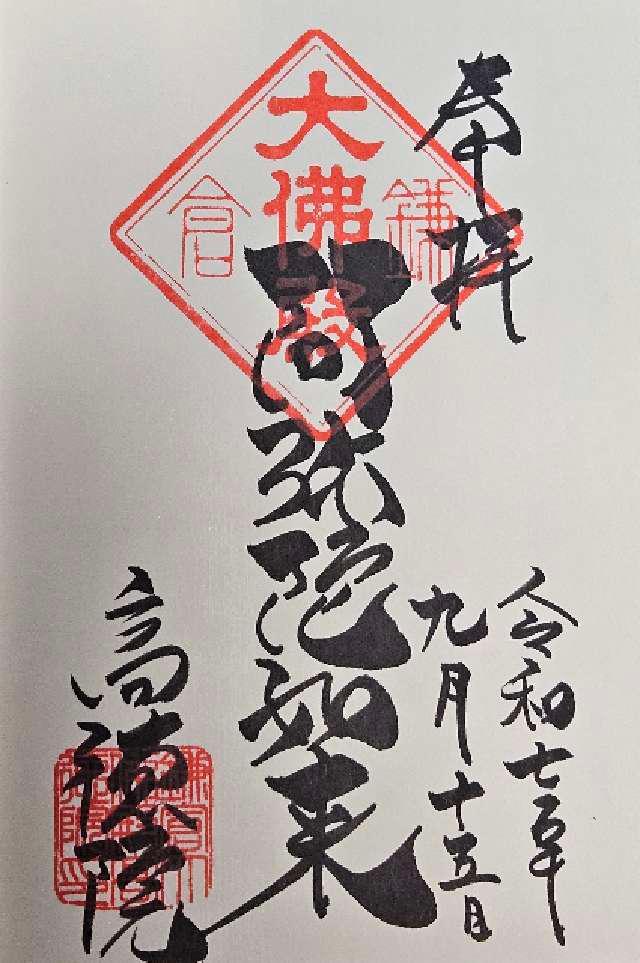 奉拝
令和七年
九月十五日
鎌倉
大佛殿
阿弥陀如来
高徳院